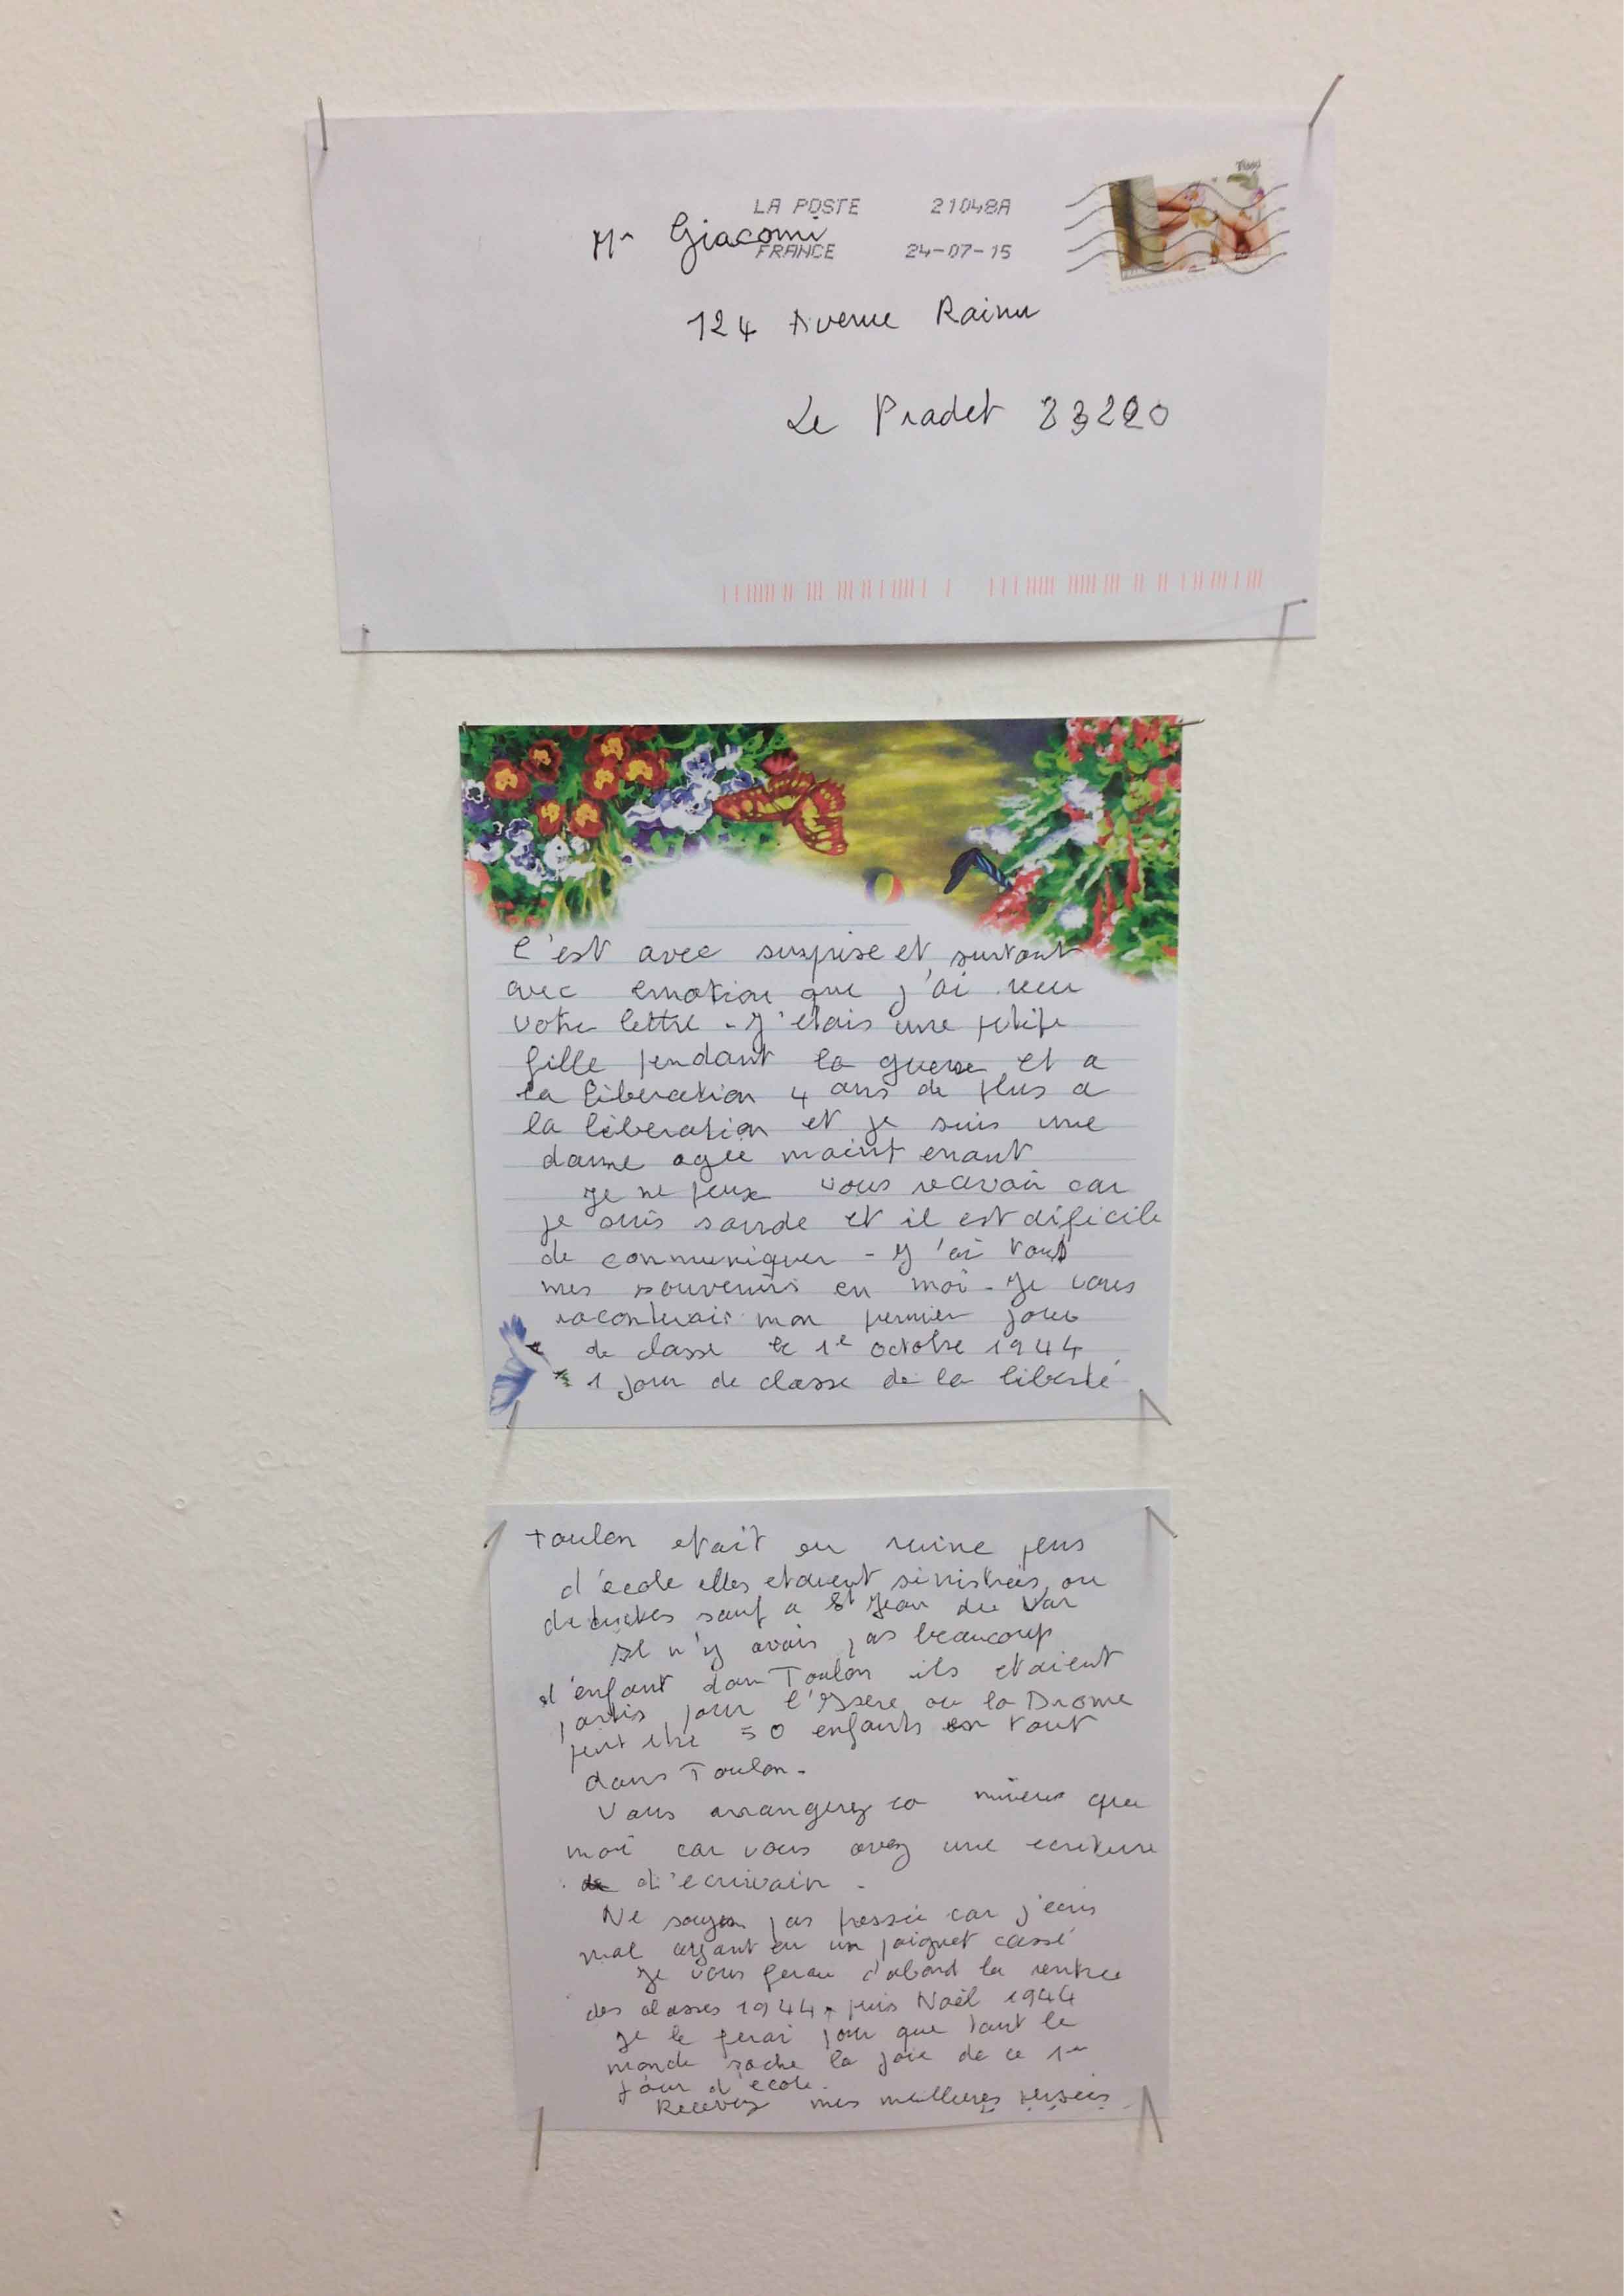 LA POSTE 21048A
Mr Giacomi
FRANCE 24-07-15
124 Avenue Rainu
Le Pradet 83220
C'est avec surprise et surtout
avec emotion que j'ai recu
votre lettre - J'etais une petite
fille pendant la guerre et a
la liberation 4 ans de plus a
la liberation et je suis une
dame agée maint enant
Je ne peux vous recevoir car
je suis sourde et il est dificile
de communiquer - J'ai tout
mes souvenirs en moi - Je vous
raconterais mon premier jour
de classe le 1e octobre 1944
1 jour de classe de la liberté
Toulon etait en ruine peus
d'école elles etaient sinistrées ou
detruites sauf a St Jean du Var
Il n'y avais pas beaucoup
d'enfant dan Toulon ils etaient
partis pour l'Isere ou la Drome
peut etre 50 enfants en tout
dans Toulon -
Vous arrangerez ca mieux que
moi car vous avez une ecriture
d'ecrivain -
Ne soyez pas pressée car j'ecris
mal ayant eu un poignet cassé
Je vous ferau d'abord la rentree
des classes 1944 puis Noël 1944
Je le ferai pour que tout le
monde sache la joie de ce 1er
jour d'école.
Recevez mes meilleures pensées